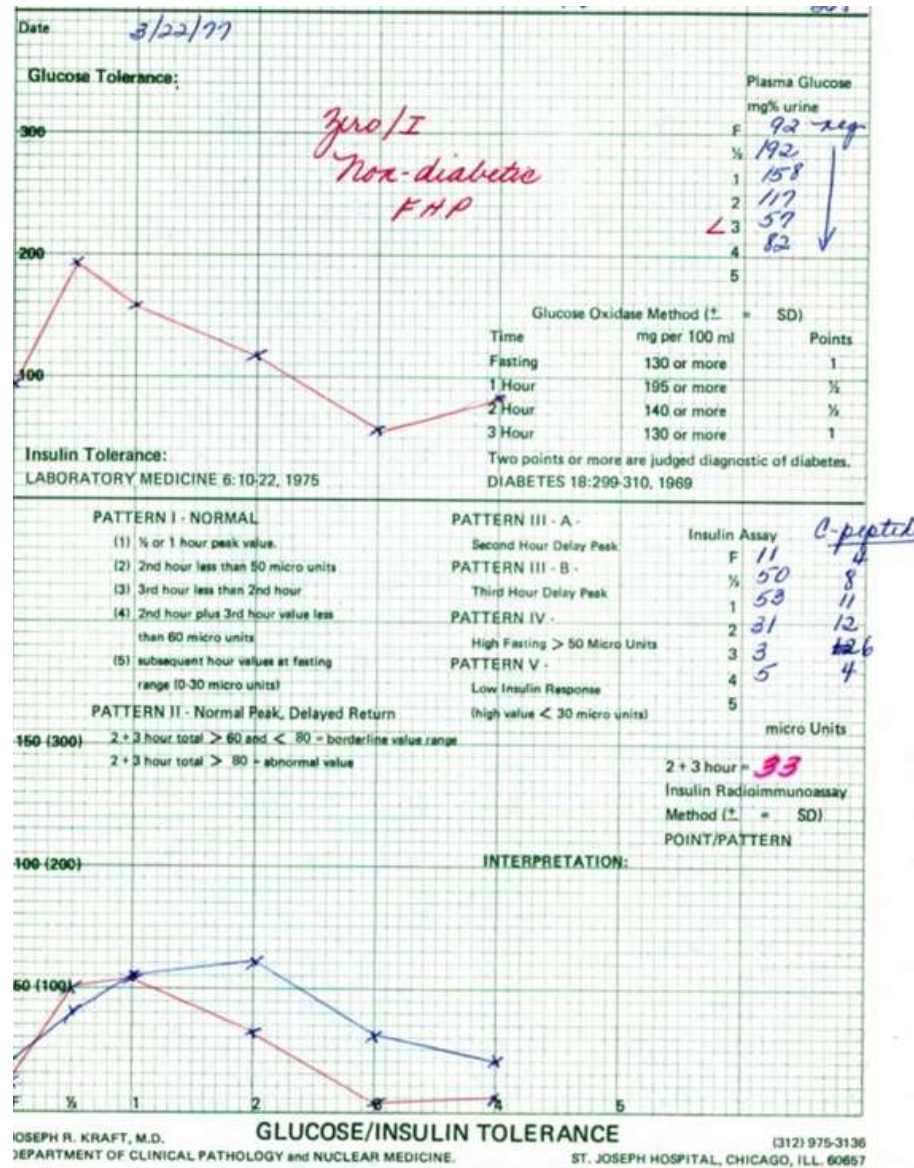 Date 3/22/77
Glucose Tolerance:
Plasma Glucose
mg% urine
300
Zero/I
Non-diabetic
FHP
F 92 neg
½ 192
1 158
2 117
< 3 57
4 82
5
200
Glucose Oxidase Method (± = SD)
Time mg per 100 ml Points
Fasting 130 or more 1
1 Hour 195 or more ½
2 Hour 140 or more ½
3 Hour 130 or more 1
100
Two points or more are judged diagnostic of diabetes.
DIABETES 18:299-310, 1969
Insulin Tolerance:
LABORATORY MEDICINE 6:10-22, 1975
PATTERN I - NORMAL
(1) ½ or 1 hour peak value.
(2) 2nd hour less than 50 micro units
(3) 3rd hour less than 2nd hour
(4) 2nd hour plus 3rd hour value less
than 60 micro units
(5) subsequent hour values at fasting
range (0-30 micro units)
PATTERN II - Normal Peak, Delayed Return
2 + 3 hour total > 60 and < 80 = borderline value range
2 + 3 hour total > 80 = abnormal value
PATTERN III - A -
Second Hour Delay Peak
PATTERN III - B -
Third Hour Delay Peak
PATTERN IV -
High Fasting > 50 Micro Units
PATTERN V -
Low Insulin Response
(high value < 30 micro units)
Insulin Assay C-peptid
F 11 4
½ 50 8
1 53 11
2 31 12
3 3 6
4 5 4
5
micro Units
2 + 3 hour = 33
Insulin Radioimmunoassay
Method (± = SD)
POINT/PATTERN
INTERPRETATION:
150 (300)
100 (200)
50 (100)
F ½ 1 2 3 4 5
GLUCOSE/INSULIN TOLERANCE
JOSEPH R. KRAFT, M.D.
DEPARTMENT OF CLINICAL PATHOLOGY and NUCLEAR MEDICINE.
(312) 975-3136
ST. JOSEPH HOSPITAL, CHICAGO, ILL. 60657